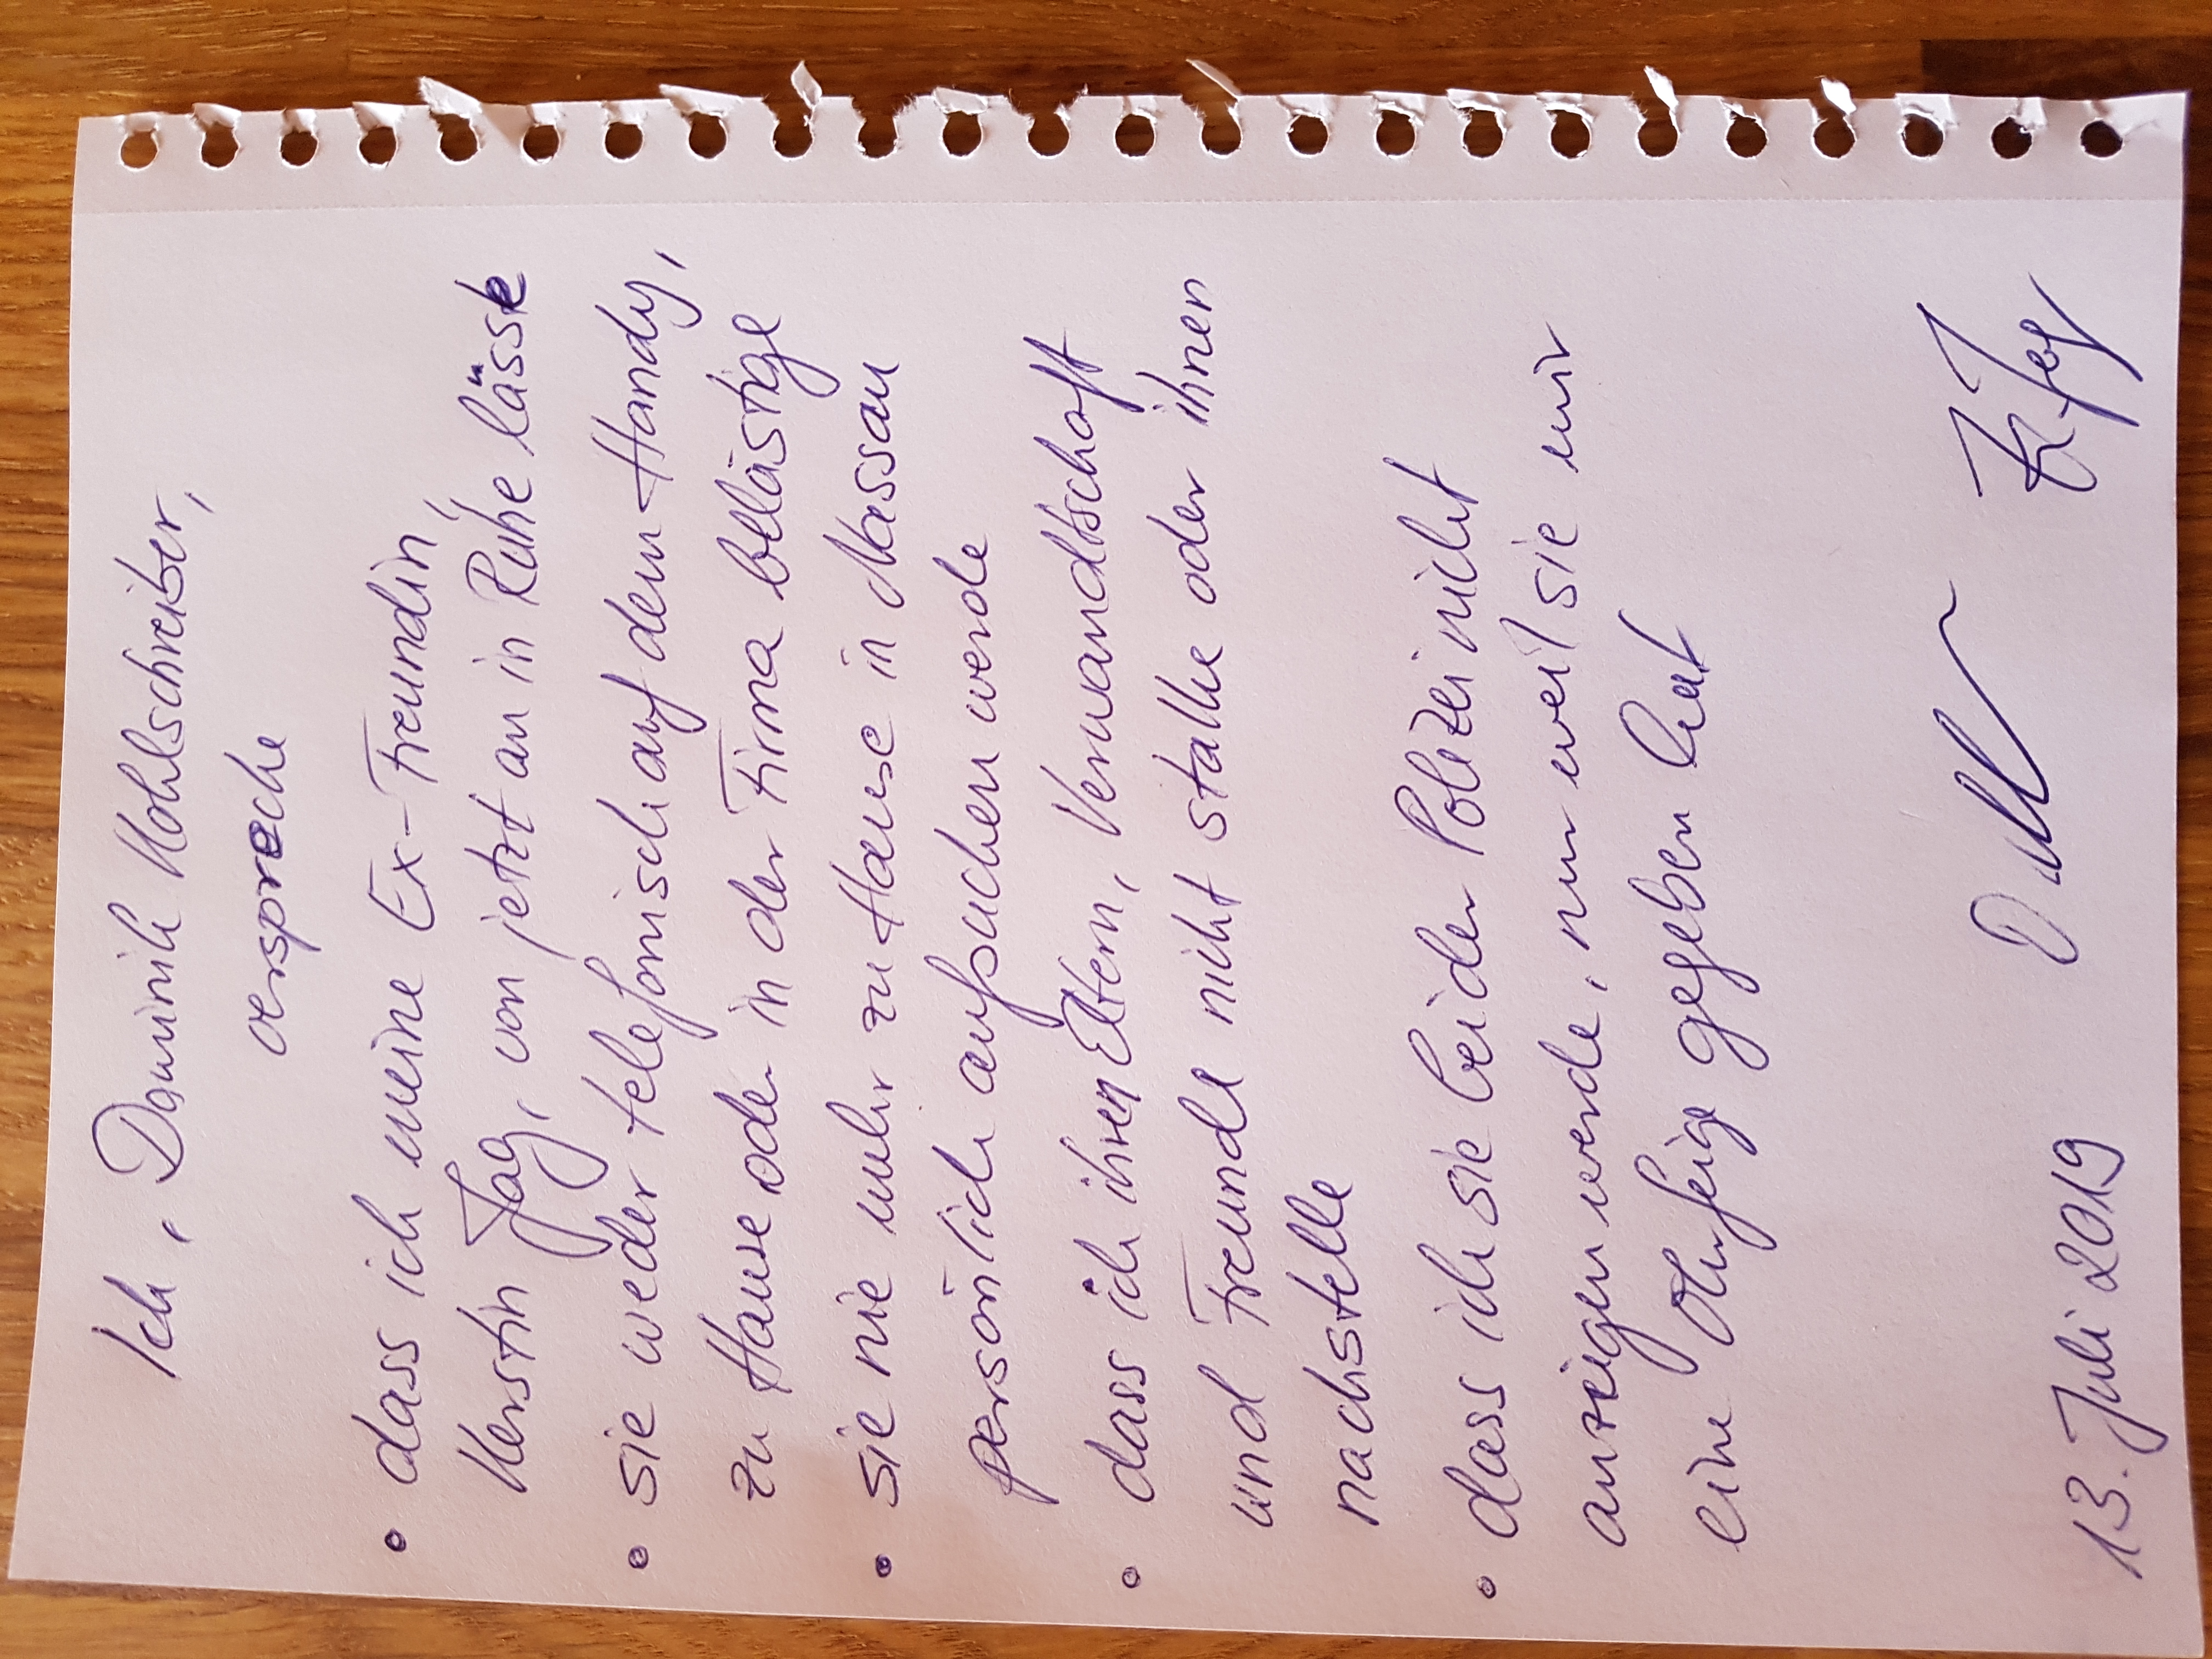 Ich, Dominik Kohlschreiber,
verspreche
• dass ich meine Ex-Freundin,
Kerstin Jag, von jetzt an in Ruhe lässt
• sie weder telefonisch auf dem Handy,
zu Hause oder in der Firma belästige
• sie nie mehr zu Hause in Nassau
persönlich aufsuchen werde
• dass ich ihren Eltern, Verwandtschaft
und Freunde nicht stalke oder ihnen
nachstelle
• dass ich sie bei der Polizei nicht
anzeigen werde, nur weil sie mir
eine Ohrfeige gegeben hat
13. Juli 2019